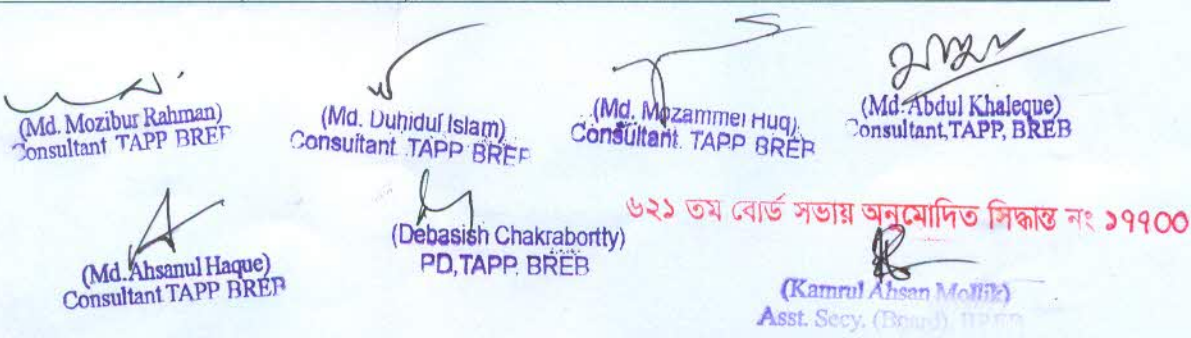 (Md. Mozibur Rahman)
Consultant TAPP BREB
(Md. Duhidul Islam)
Consultant TAPP BREB
(Md. Mozammel Huq)
Consultant. TAPP BREB
(Md. Abdul Khaleque)
Consultant, TAPP, BREB
(Md. Ahsanul Haque)
Consultant TAPP BREB
(Debasish Chakrabortty)
PD, TAPP. BREB
৬২১ তম বোর্ড সভায় অনুমোদিত সিদ্ধান্ত নং ১৭৭০০
(Kamrul Ahsan Mollik)
Asst. Secy. (Board), BREB